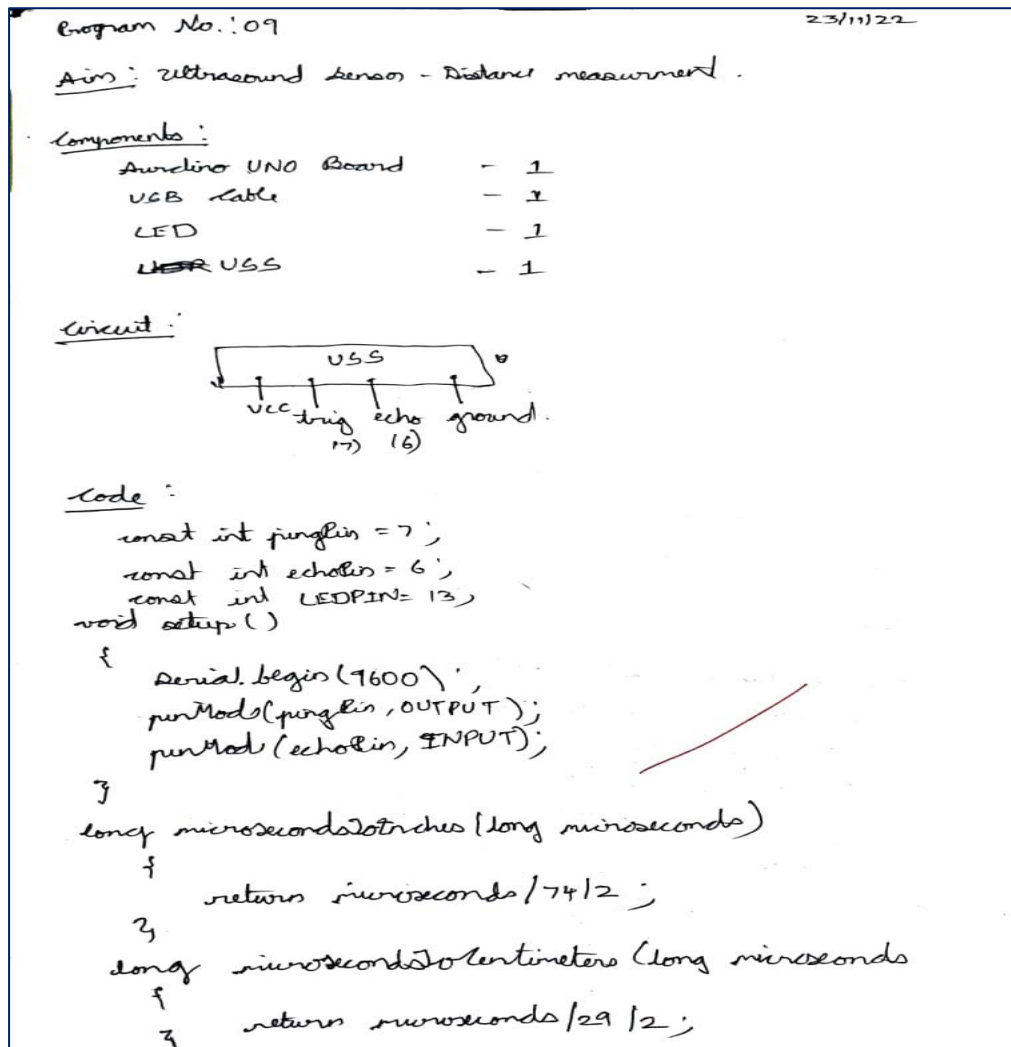 Program No.: 09
23/11/22
Aim: Ultrasound Sensor - Distance measurment.
Components:
Aurdino UNO Board - 1
USB Cable - 1
LED - 1
USS - 1
Circuit:
USS
VCC trig echo ground.
(7) (6)
Code:
const int pingPin = 7;
const int echoPin = 6;
const int LEDPIN = 13;
void setup()
{
Serial.begin(9600);
pinMode(pingPin, OUTPUT);
pinMode(echoPin, INPUT);
}
long microsecondsToInches(long microseconds)
{
return microseconds/74/2;
}
long microsecondsToCentimeters(long microseconds
{
return microseconds/29/2;
}